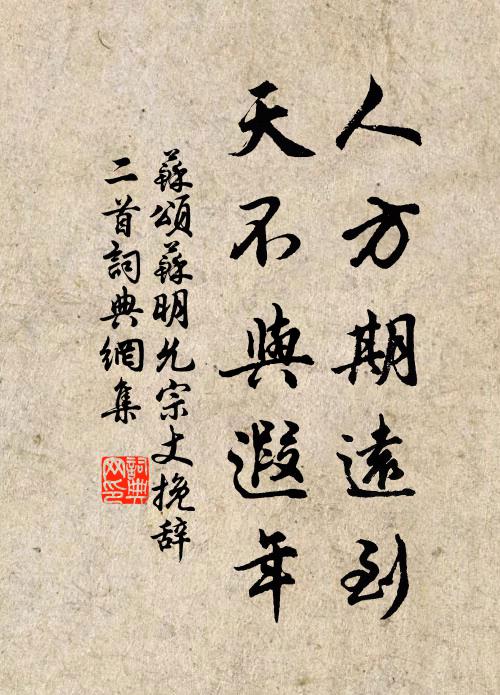 人方期遠到
天不與遐年
蘇頌蘇明允宗丈挽辞
二首詞典網集
詞典网印